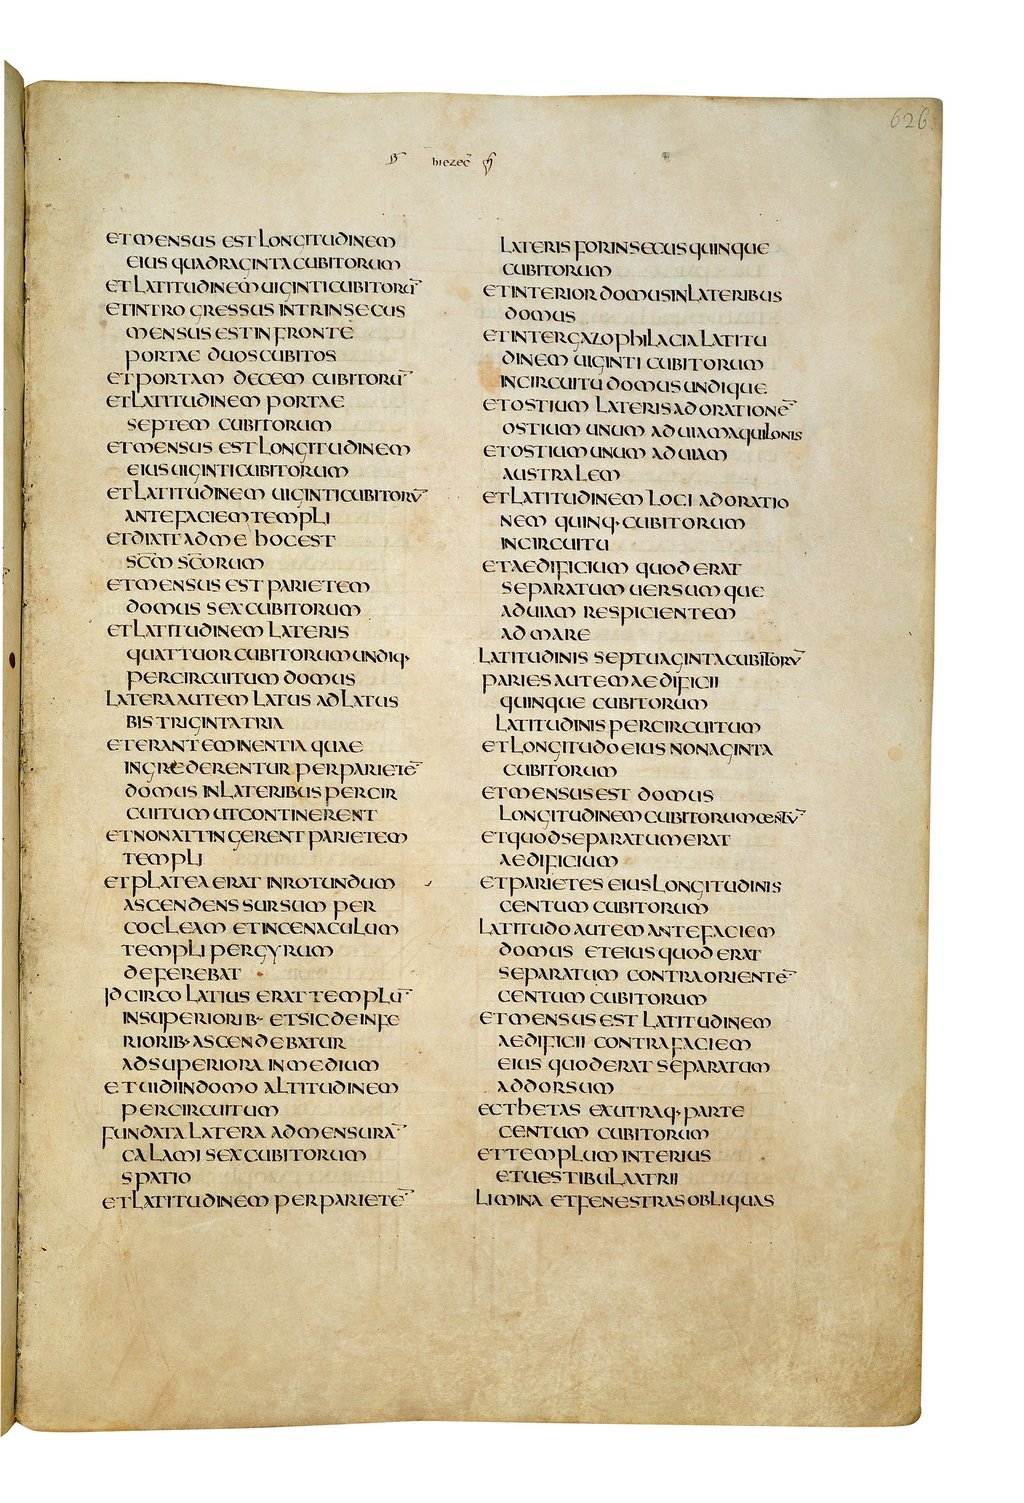 626
hiezecͫ
ET MENSUS EST LONGITUDINEM
EIUS QUADRAGINTA CUBITORUM
ET LATITUDINEM UIGINTI CUBITORŪ
ET INTROGRESSUS INTRINSECUS
MENSUS EST IN FRONTE
PORTAE DUOS CUBITOS
ET PORTAM DECEM CUBITORŪ
ET LATITUDINEM PORTAE
SEPTEM CUBITORUM
ET MENSUS EST LONGITUDINEM
EIUS UIGINTI CUBITORUM
ET LATITUDINEM UIGINTI CUBITORŪ
ANTE FACIEM TEMPLI
ET DIXIT AD ME HOC EST
SC̄M SC̄ORUM
ET MENSUS EST PARIETEM
DOMUS SEX CUBITORUM
ET LATITUDINEM LATERIS
QUATTUOR CUBITORUM UNDIQ·
PER CIRCUITUM DOMUS
LATERA AUTEM LATUS AD LATUS
BIS TRIGINTA TRIA
ET ERANT EMINENTIA QUAE
INGREDERENTUR PER PARIETĒ
DOMUS IN LATERIBUS PER CIR
CUITUM UT CONTINERENT
ET NON ATTINGERENT PARIETEM
TEMPLI
ET PLATEA ERAT IN ROTUNDUM
ASCENDENS SURSUM PER
COCLEAM ET IN CENACULUM
TEMPLI PER GYRUM
DEFEREBAT
IDCIRCO LATIUS ERAT TEMPLŪ
IN SUPERIORIB· ET SIC DE INFE
RIORIB· ASCENDEBATUR
AD SUPERIORA IN MEDIUM
ET UIDI IN DOMO ALTITUDINEM
PER CIRCUITUM
FUNDATA LATERA AD MENSURĀ
CALAMI SEX CUBITORUM
SPATIO
ET LATITUDINEM PER PARIETĒ
LATERIS FORINSECUS QUINQUE
CUBITORUM
ET INTERIOR DOMUS IN LATERIBUS
DOMUS
ET INTER GAZOPHILACIA LATITU
DINEM UIGINTI CUBITORUM
IN CIRCUITU DOMUS UNDIQUE
ET OSTIUM LATERIS AD ORATIONĒ
OSTIUM UNUM AD UIAM AQUILONIS
ET OSTIUM UNUM AD UIAM
AUSTRALEM
ET LATITUDINEM LOCI AD ORATIO
NEM QUINQ· CUBITORUM
IN CIRCUITU
ET AEDIFICIUM QUOD ERAT
SEPARATUM UERSUMQUE
AD UIAM RESPICIENTEM
AD MARE
LATITUDINIS SEPTUAGINTA CUBITORŪ
PARIES AUTEM AEDIFICII
QUINQUE CUBITORUM
LATITUDINIS PER CIRCUITUM
ET LONGITUDO EIUS NONAGINTA
CUBITORUM
ET MENSUS EST DOMUS
LONGITUDINEM CUBITORUM CENTŪ
ET QUOD SEPARATUM ERAT
AEDIFICIUM
ET PARIETES EIUS LONGITUDINIS
CENTUM CUBITORUM
LATITUDO AUTEM ANTE FACIEM
DOMUS ET EIUS QUOD ERAT
SEPARATUM CONTRA ORIENTĒ
CENTUM CUBITORUM
ET MENSUS EST LATITUDINEM
AEDIFICII CONTRA FACIEM
EIUS QUOD ERAT SEPARATUM
AD DORSUM
ECTHETAS EX UTRAQ· PARTE
CENTUM CUBITORUM
ET TEMPLUM INTERIUS
ET UESTIBULA ATRII
LIMINA ET FENESTRAS OBLIQUAS